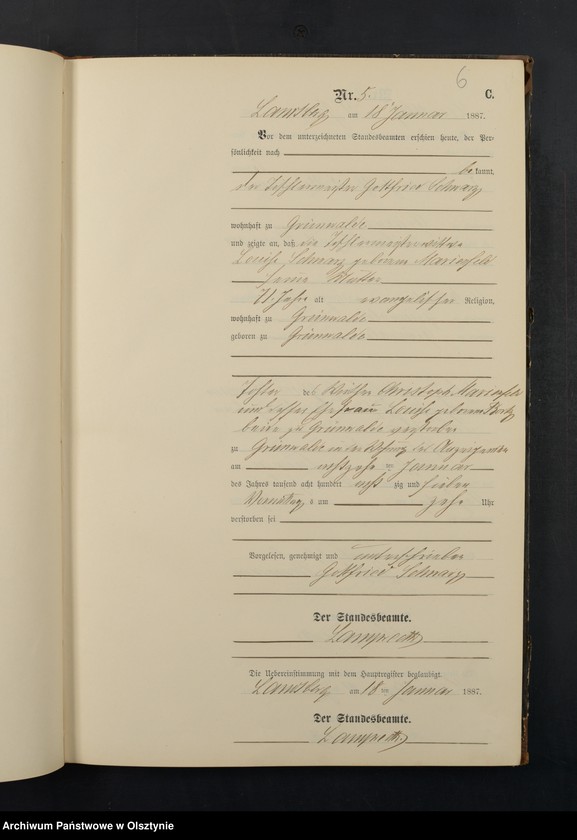 6
Nr. 5. C.
Landsberg am 18 Januar 1887.
Vor dem unterzeichneten Standesbeamten erschien heute, der Per-
sönlichkeit nach
bekannt,
der Gottfried Schwarz
wohnhaft zu Grünwalde
und zeigte an, daß die
Louise Schwarz geborene Marienfeld
seine Mutter
71 Jahre alt evangelischer Religion,
wohnhaft zu Grünwalde
geboren zu Grünwalde
Tochter des Christoph Marienfeld
und dessen Ehefrau Louise geborene
beide zu Grünwalde verstorben
zu Grünwalde in der Wohnung des
am achtzehn ten Januar
des Jahres tausend acht hundert acht zig und sieben
Vormittags um zehn Uhr
verstorben sei
Vorgelesen, genehmigt und unterschrieben
Gottfried Schwarz
Der Standesbeamte.
Lamprecht
Die Uebereinstimmung mit dem Hauptregister beglaubigt.
Landsberg am 18 ten Januar 1887.
Der Standesbeamte.
Lamprecht
Archiwum Państwowe w Olsztynie